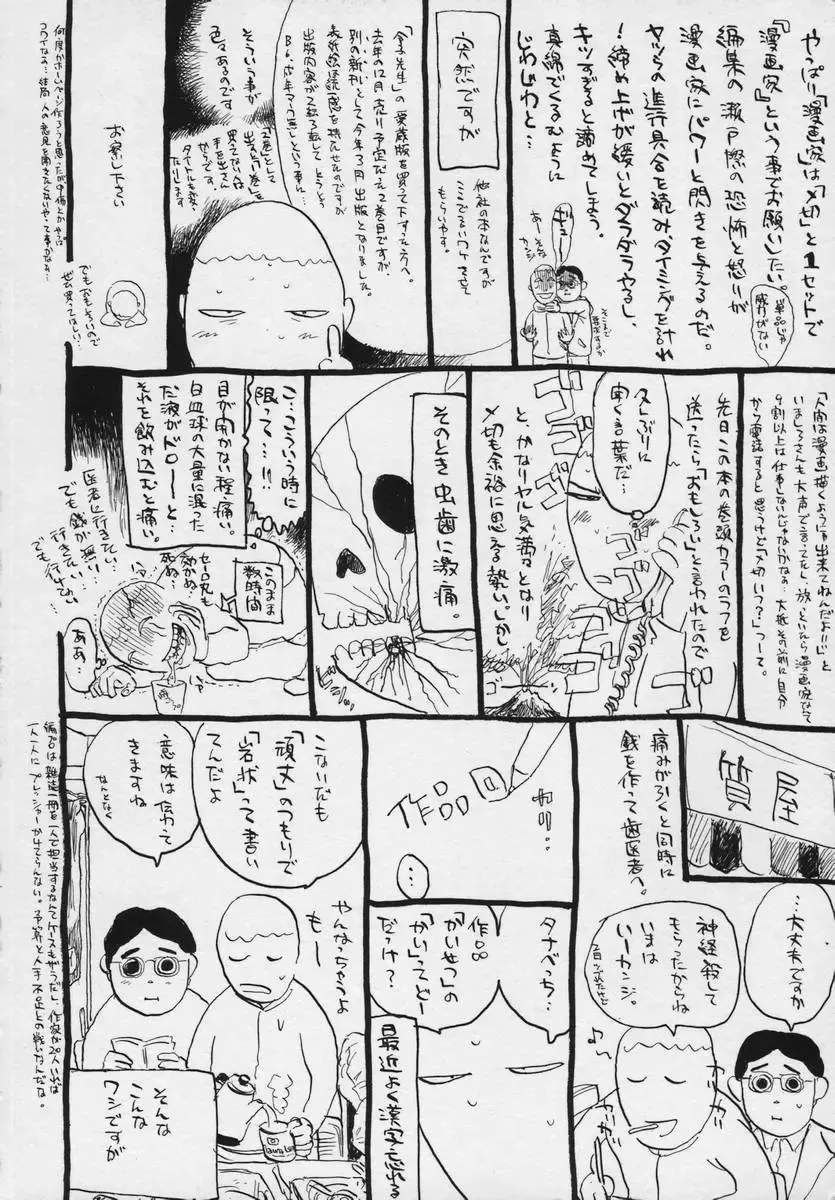 やっぱり「漫画家」は「〆切」と1セットで
『漫画家』という事でお願いしたい。
編集の瀬戸際の恐怖と怒りが
漫画家にパワーと閃きを与えるのだ。
ヤツらの進行具合を読み、タイミングを計れ
!締め上げが緩いとダラダラやるし、
キツすぎると諦めてしまう。
真綿でくるむように
じわじわと…
単品じゃ
威力がない
ギュー
あーそんな
カンジ
そこまで
要求するか
突然ですが
他社の本なんですが
ここでいいワケを立て
もらいやす。
去年の12月売り予定だった2巻目ですが、
別の新刊として今年3月出版となりました。
そういう事が
色々あるのです
「2巻」として
出ると「1巻」を
買ってない人は
手を出さん
からです。
タイトルも変
なります
お察し下さい
でもおもしろいので
ぜひ買ってほしい…
何度かホームページ作ろうと思ったが
「人間は漫画描くよう出来てねんだよ!!」と
いましろさんも大声で言ってたし、放っといたら漫画家なんて
9割以上は仕事しないんじゃないかなぁ…大抵その前に自分
から電話すると思うけど「〆切いつ?」つーて。
先日この本の巻頭カラーのラフを
送ったら「おもしろい」と言われたので
久しぶりに
聞く言葉だ…
ゴゴゴゴゴ
と、かなりヤル気満々となり
〆切も余裕に思える勢い。しか
そのとき虫歯に激痛。
こ…こういう時に
限って…!!
目が開かない程痛い。
白血球の大量に混った
だ液がドローーと…
それを飲み込むと痛い。
このまま
数時間
セーロ丸も
効かぬ…
死ぬ…
医者に行きたい…
でも銭が無い…
行きたい…
でも行けない…
ああ…
質屋
痛みが引くと同時に
銭を作って歯医者へ。
…大丈夫ですか
神経殺して
もらったからね
いまは
いーカンジ。
♪~
カリカリ
カリカリ
作品回
カリ…
…
タナベっち…
作品
「かいせつ」の
「かい」ってどー
だっけ?
最近よく漢字忘れる
こないだも
「頑丈」のつもりで
「岩状」って書い
てんだよ
意味は伝わって
きますね
なんとなく
やんなっちゃうよ
もー
そんな
こんな
ワシですが
編プロは雑誌一冊を一人で担当するなんてケースもザラだし、作家が20人いれば
一人一人にプレッシャーかけてらんない。予算と人手不足との戦いなんだな。